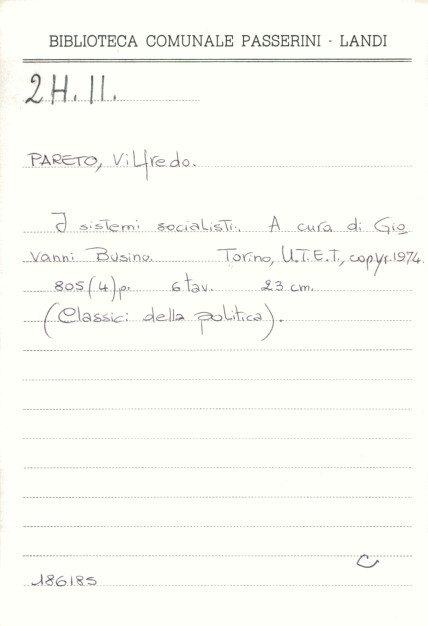 BIBLIOTECA COMUNALE PASSERINI - LANDI
2H.II.
PARETO, Vilfredo.
I sistemi socialisti. A cura di Gio
vanni Busino. Torino, U.T.E.T., copyr. 1974.
805 (4) p. 6 tav. 23 cm.
(Classici della politica).
C
186185